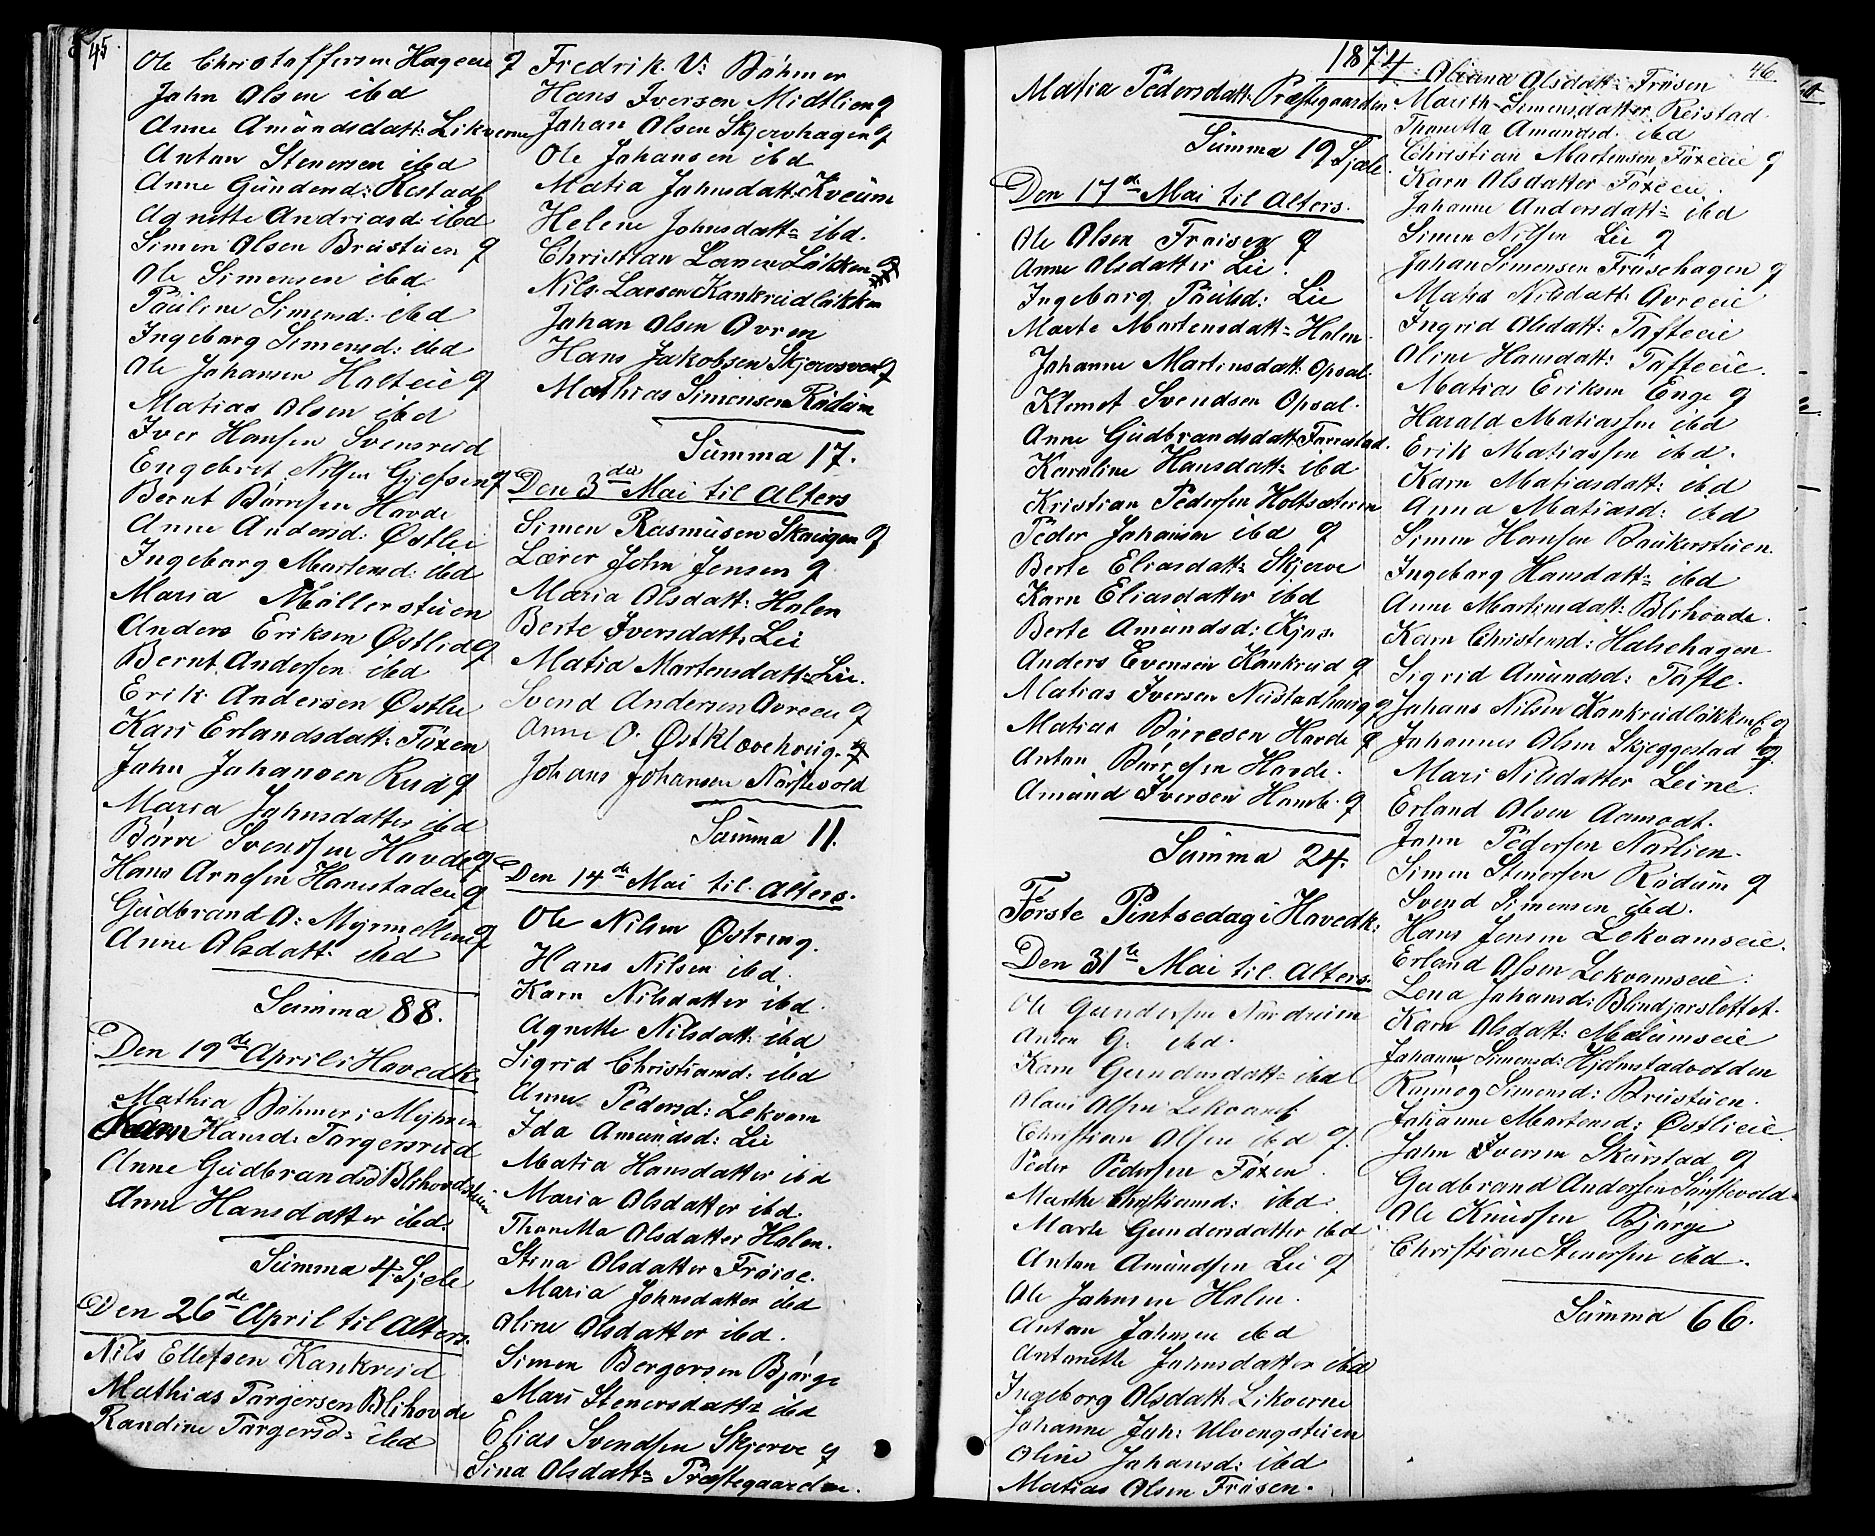 45.
Ole Christoffersen Hageeie q
John Olsen ibd
Anne Amundsdatt: Likverne
Anton Stenersen ibd
Anne Gundersd: Restad q
Agnette Andriasd: ibd
Simen Olsen Brustuen q
Ole Simensen ibd
Pauline Simensd: ibd
Ingeborg Simensd: ibd
Ole Johansen Holteie q
Matias Olsen ibd
Iver Hansen Svensrud
Engebret Nilsen Gjefsen q
Bernt Børresen Hovde
Anne Andersd: Østlie
Ingeborg Martensd: ibd
Maria Møllerstuen
Anders Eriksen Østlie q
Bernt Anderssen ibd
Erik Andersen Østlie
Kari Erlandsdatt: Foxen
John Johansen Rud q
Maria Johnsdatter ibd
Børre Svendsen Hovde q
Hans Arnesen Hanestadeie q
Gudbrand O: Myrmellene q
Anne Olsdatt: ibd
Summa 88.
Den 19de April i Hovedk.
Mathia Bøhmer i Myhren
Karn Hansd: Torgersrud
Anne Gudbrandsd Blihovdstuen
Anne Hansdatter ibd.
Summa 4 Sjele
Den 26de April til Alters.
Nils Ellefsen Kankrud
Mathias Torgersen Blihovde
Randine Torgersd: ibd
Fredrik V: Bøhmer
Hans Iversen Midtlien q
Johan Olsen Skjervhagen q
Ole Johansen ibd
Matia Johnsdatt: Kveum
Helene Johnsdatt: ibd.
Christian Larsen Løkken q
Nils Larsen Kankrudløkken
Johan Olsen Ovren
Hans Jakobsen Skjervsven q
Mathias Simensen Rødum
Summa 17.
Den 3de Mai til Alters
Simen Rasmusen Skaugen q
Lærer John Jensen q
Maria Olsdatt: Holen
Berte Iversdatt: Lie
Matia Martensdatt: Lie.
Svend Andersen Ovreeie q
Anne O. Østklævehoug. q
Johans Johansen Nørstevold
Summa 11.
Den 14de Mai til Alters.
Ole Nilsen Østreng.
Hans Nilsen ibd.
Karn Nilsdatter ibd.
Agnette Nilsdatt: ibd
Sigrid Christiansd: ibd
Anne Pedersd: Lekvam
Ida Amundsd: Lie
Matia Hansdatter ibd
Maria Olsdatter ibd.
Thonetta Olsdatter Holen.
Stina Olsdatter Froise.
Maria Johnsdatter ibd
Oline Olsdatter ibd.
Simen Bergersen Bjørge
Mari Stenersdatt: ibd
Elias Svendsen Skjerve q
Sina Olsdatt: Præstegaarden.
1874
46.
Matia Pedersdatt: Præstegaarden
Summa 19 Sjæle.
Den 17de Mai til Alters.
Ole Olsen Froisen q
Anne Olsdatter Lie.
Ingeborg Paulsd: Lie
Marte Martensdatt: Holen
Johanne Martinsdatt: Opsal.
Klemet Svendsen Opsal.
Anne Gudbrandsdatt: Tarrestad.
Karoline Hansdatt: ibd
Kristian Pedersen Holtsæteren
Peder Johansen ibd q
Berte Eliasdatt: Skjerve
Karn Eliasdatter ibd
Berte Amundsd: Kjos.
Anders Evensen Kankrud q
Matias Iversen Neistadhaug q
Matias Børresen Hovde q
Anton Børresen Hovde.
Amund Iversen Homb. q
Summa 24.
Første Pintsedag i Hovedk:
Den 31te Mai til Alters.
Ole Gundersen Nordrum
Anton G. ibd.
Karn Gundersdatt: ibd
Olaus Olsen Lekvam q
Christian Olsen ibd q
Peder Pedersen Foxen
Marthe Christiansd: ibd
Marte Gundersdatter ibd
Anton Amundsen Lie q
Ole Johnsen Holen.
Anton Johnsen ibd
Antonette Johnsdatter ibd
Ingeborg Olsdatt: Likverne
Johanne Joh: Ulvengstuen
Oline Johansd: ibd
Matias Olsen Frøsen.
Oleana Olsdatt: Frøsen
Marith Simensdatter Reistad.
Thonetta Amundsd. ibd
Christian Martensen Foxeeie q
Karn Olsdatter Foxeeie.
Johanne Andersdatt: ibd
Simen Nilsen Lie q
Johan Simensen Frøsehagen q
Matea Nilsdatt: Ovreeie
Ingrid Olsdatt: Tofteeie
Oline Hansdatt: Tofteeie.
Matias Eriksen Enge q
Harald Matiassen ibd
Erik Matiassen ibd.
Karn Matiasdatt: ibd
Anna Matiasd: ibd
Simen Hansen Baukerstuen.
Ingeborg Hansdatt: ibd
Anne Martinsdatt: Blihovde.
Karn Christensd: Halsehagen
Sigrid Amundsd: Tofte.
Johans Nilsen Kankrudløkken q
Johannes Olsen Skjeggestad q
Mari Nilsdatter Leine.
Erland Olsen Aamodt.
John Pedersen Nørlien.
Simen Stenersen Rødum q
Svend Simensen ibd.
Hans Jensen Lekvamseie.
Erland Olsen Lekvamseie.
Lena Johansd: Blindjorslettet.
Karn Olsdatt: Mælumseie
Johanne Simensd: Hjelmstadvolden
Rønnog Simensd: Brustuen.
Johanne Martensd: Østlieie.
John Iversen Skurstad q
Gudbrand Andersen Sønstevold.
Ole Knudsen Bjørge
Christian Stenersen ibd.
Summa 66.